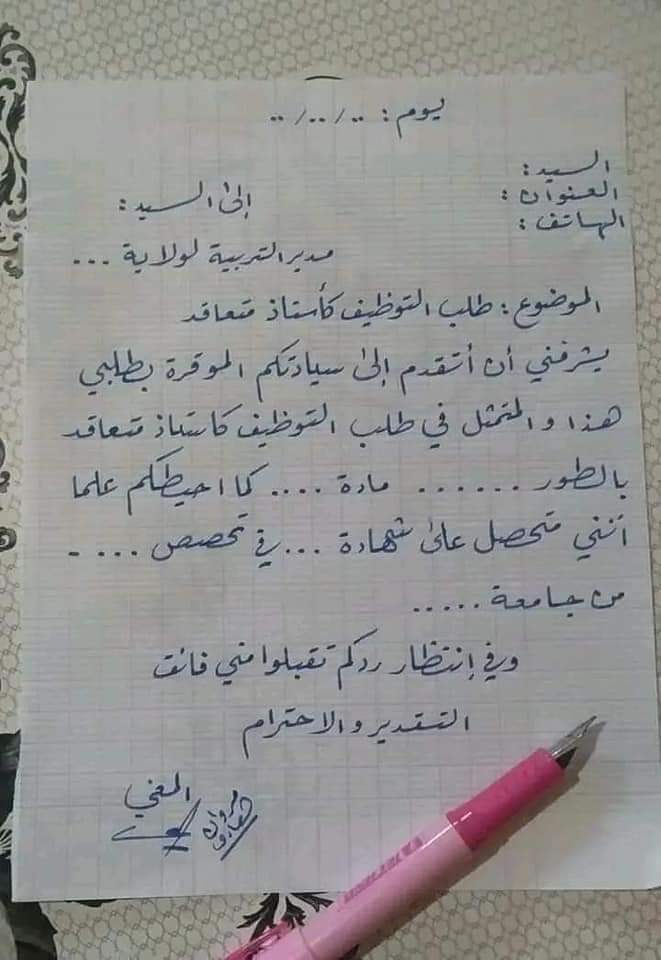 يوم : ../../..
السيد :
العنوان :
الهاتف :
إلى السيد :
مدير التربية لولاية ...
الموضوع : طلب التوظيف كأستاذ متعاقد
يشرفني أن أتقدم إلى سيادتكم الموقرة بطلبي
هذا والمتمثل في طلب التوظيف كأستاذ متعاقد
بالطور ...... مادة .... كما احيطكم علما
أنني متحصل على شهادة ... في تخصص ....
من جامعة .....
وفي إنتظار ردكم تقبلوا مني فائق
التقدير والاحترام
المعني